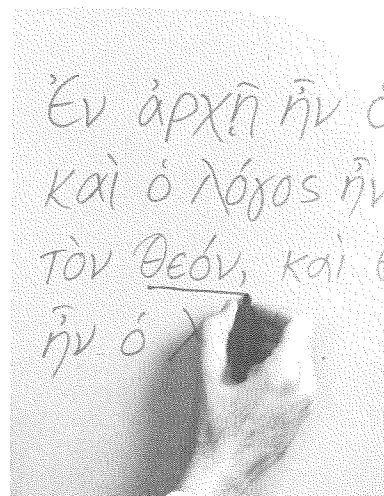 Ἐν ἀρχῇ ἦν ὁ
καὶ ὁ λόγος ἦν
τὸν θεόν, καὶ
ἦν ὁ